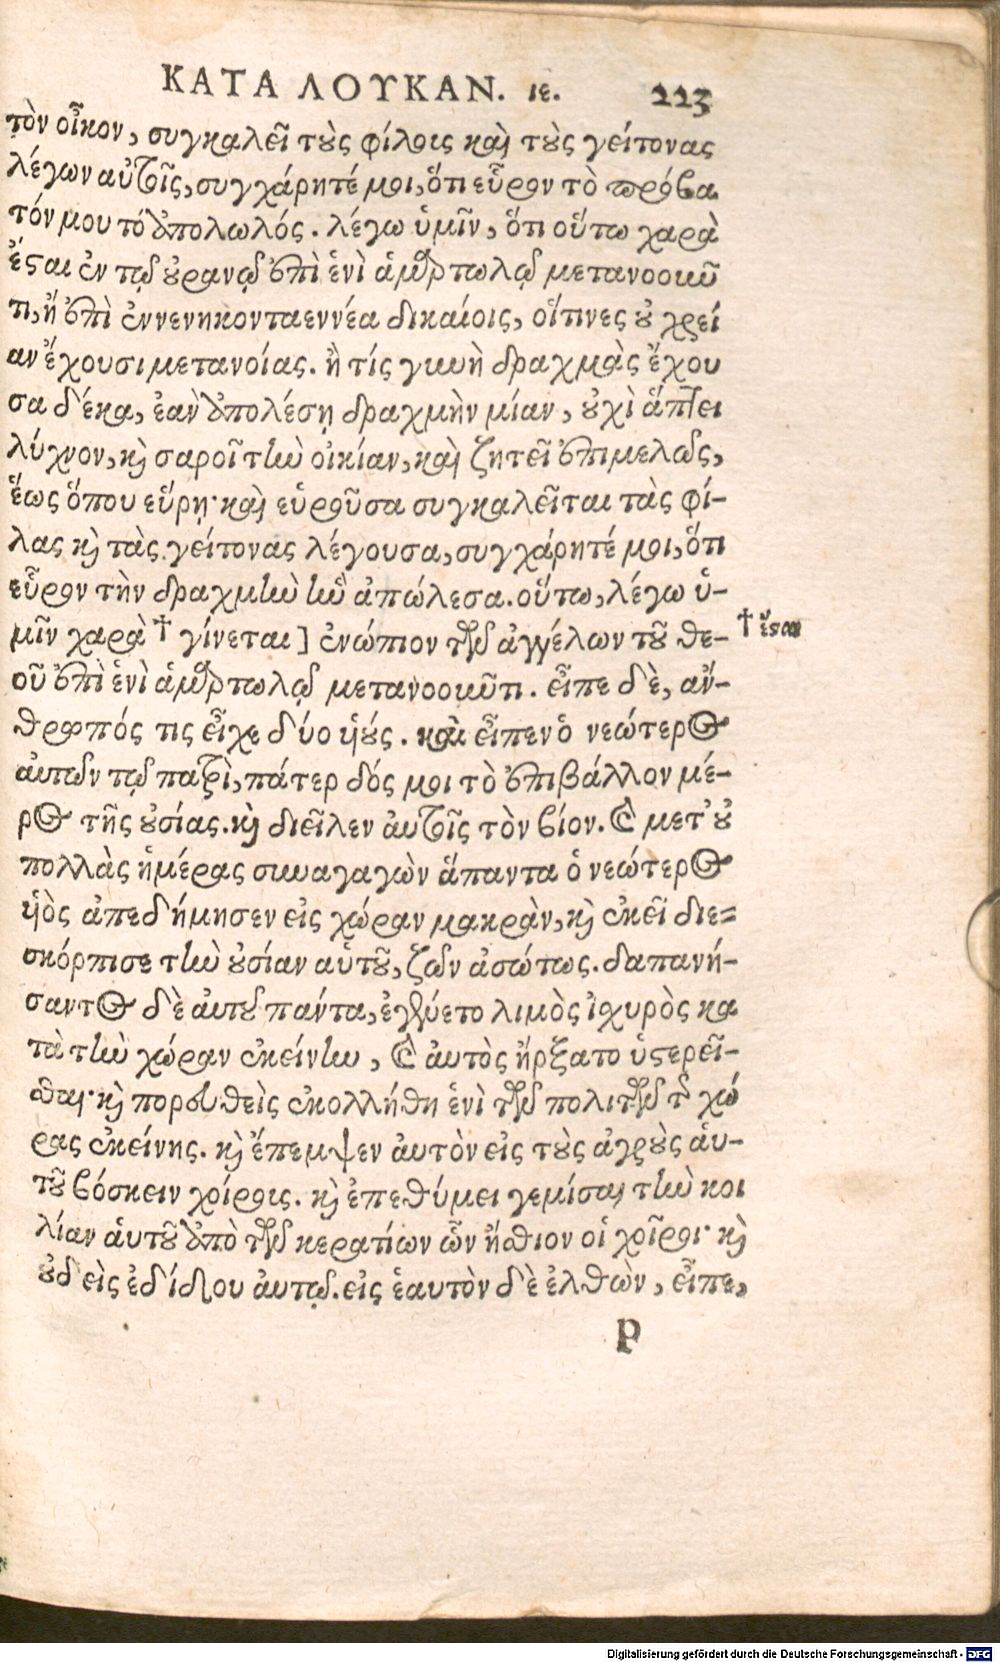 ΚΑΤΑ ΛΟΥΚΑΝ. ιε. 223
τὸν οἶκον, συγκαλεῖ τοὺς φίλοις καὶ τοὺς γείτονας
λέγων αὐτοῖς, συγχάρητέ μοι, ὅτι εὗρον τὸ πρόβα
τόν μου τὸ ἀπολωλός. λέγω ὑμῖν, ὅτι οὕτω χαρὰ
ἔσται ἐν τῷ οὐρανῷ ἐπὶ ἑνὶ ἁμαρτωλῷ μετανοοῦν
τι, ἢ ἐπὶ ἐννενηκονταεννέα δικαίοις, οἵτινες οὐ χρεί
αν ἔχουσι μετανοίας. ἢ τίς γυνὴ δραχμὰς ἔχου
σα δέκα, ἐὰν ἀπολέσῃ δραχμὴν μίαν, οὐχὶ ἅπτει
λύχνον, καὶ σαροῖ τὴν οἰκίαν, καὶ ζητεῖ ἐπιμελῶς,
ἕως ὅπου εὕρῃ· καὶ εὑροῦσα συγκαλεῖται τὰς φί-
λας καὶ τὰς γείτονας λέγουσα, συγχάρητέ μοι, ὅτι
εὗρον τὴν δραχμὴν ἣν ἀπώλεσα. οὕτω, λέγω ὑ-
μῖν χαρὰ † γίνεται] ἐνώπιον τῶν ἀγγέλων τοῦ θε-
† ἔσται
οῦ ἐπὶ ἑνὶ ἁμαρτωλῷ μετανοοῦντι. εἶπε δὲ, ἄν-
θρωπός τις εἶχε δύο υἱούς. καὶ εἶπεν ὁ νεώτερος
αὐτῶν τῷ πατρὶ, πάτερ δός μοι τὸ ἐπιβάλλον μέ-
ρος τῆς οὐσίας. καὶ διεῖλεν αὐτοῖς τὸν βίον. καὶ μετ' οὐ
πολλὰς ἡμέρας συναγαγὼν ἅπαντα ὁ νεώτερος
υἱὸς ἀπεδήμησεν εἰς χώραν μακρὰν, καὶ ἐκεῖ διε-
σκόρπισε τὴν οὐσίαν αὑτοῦ, ζῶν ἀσώτως. δαπανή-
σαντος δὲ αὐτοῦ πάντα, ἐγένετο λιμὸς ἰσχυρὸς κα
τὰ τὴν χώραν ἐκείνην, καὶ αὐτὸς ἤρξατο ὑστερεῖ-
σθαι· καὶ πορευθεὶς ἐκολλήθη ἑνὶ τῶν πολιτῶν τῆς χώ
ρας ἐκείνης. καὶ ἔπεμψεν αὐτὸν εἰς τοὺς ἀγροὺς αὑ-
τοῦ βόσκειν χοίροις. καὶ ἐπεθύμει γεμίσαι τὴν κοι
λίαν αὑτοῦ ἀπὸ τῶν κερατίων ὧν ἤσθιον οἱ χοῖροι· καὶ
οὐδεὶς ἐδίδου αὐτῷ. εἰς ἑαυτὸν δὲ ἐλθὼν, εἶπε,
p
Digitalisierung gefördert durch die Deutsche Forschungsgemeinschaft - DFG